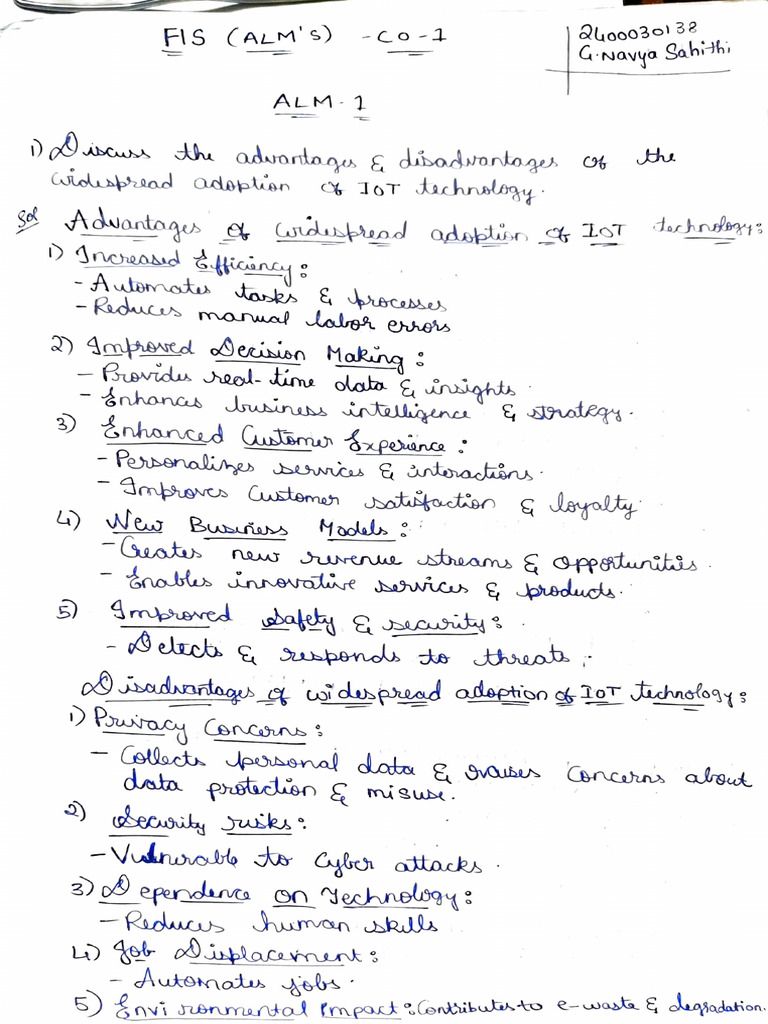 FIS (ALM'S) - CO-1
2400030138
G.Navya Sahithi
ALM-1
1) Discuss the advantages & disadvantages of the
widespread adoption of IoT technology.
Sol Advantages of widespread adoption of IoT technology:
1) Increased Efficiency:
- Automates tasks & processes
- Reduces manual labor errors
2) Improved Decision Making:
- Provides real-time data & insights.
- Enhances business intelligence & strategy.
3) Enhanced Customer Experience:
- Personalizes services & interactions.
- Improves Customer satisfaction & loyalty.
4) New Business Models:
- Creates new revenue streams & opportunities.
- Enables innovative services & products.
5) Improved Safety & security:
- Detects & responds to threats.
Disadvantages of widespread adoption of IoT technology:
1) Privacy Concerns:
- Collects personal data & raises concerns about
data protection & misuse.
2) Security risks:
- Vulnerable to Cyber attacks.
3) Dependence on Technology:
- Reduces human skills
4) Job Displacement:
- Automates jobs.
5) Environmental Impact: Contributes to e-waste & degradation.